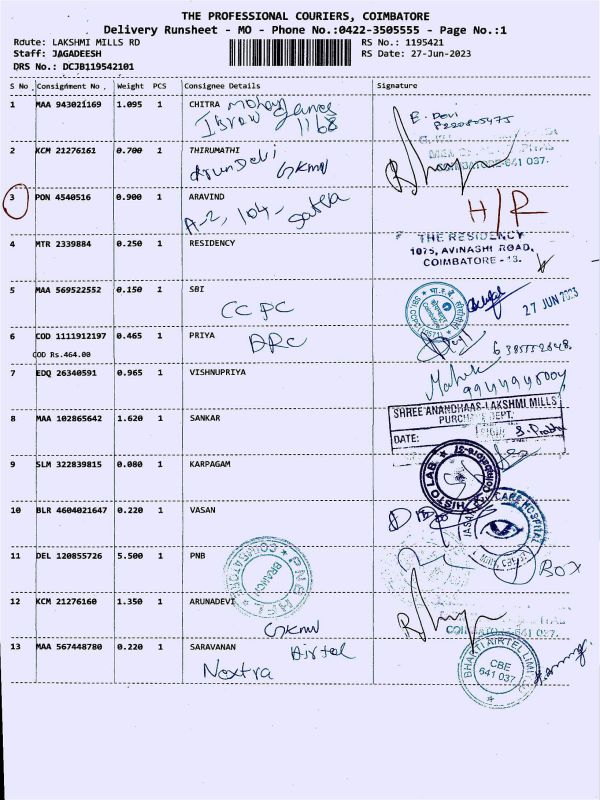 THE PROFESSIONAL COURIERS, COIMBATORE
Delivery Runsheet - MO - Phone No.:0422-3505555 - Page No.:1
Route: LAKSHMI MILLS RD RS No.: 1195421
Staff: JAGADEESH RS Date: 27-Jun-2023
DRS No.: DCJB119542101
S No Consignment No Weight PCS Consignee Details Signature
1 MAA 943021169 1.095 1 CHITRA Mohan
1168
E. Devi
2 KCM 21276161 0.700 1 THIRUMATHI
Arundevi
GKNM
641 037.
3 PON 4540516 0.900 1 ARAVIND
A-2, 104-
H/R
4 MTR 2339884 0.250 1 RESIDENCY
THE RESIDENCY
1075, AVINASHI ROAD,
COIMBATORE - 18.
5 MAA 569522552 0.150 1 SBI
CCPC
27 JUN 2023
6 COD 1111912197 0.465 1 PRIYA
DRC
COD Rs.464.00
7 EDQ 26340591 0.965 1 VISHNUPRIYA
SHREE ANANDHAAS-LAKSHMI MILLS
PURCHASE DEPT.
DATE:
8 MAA 102865642 1.620 1 SANKAR
9 SLM 322839815 0.080 1 KARPAGAM
HISTO LAB
10 BLR 4604021647 0.220 1 VASAN
CARE HOSPITAL
11 DEL 120855726 5.500 1 PNB
BRANCH
BOX
12 KCM 21276160 1.350 1 ARUNADEVI
GKNM
641 037.
13 MAA 567448780 0.220 1 SARAVANAN
Airtel
Noxtra
BHARTI AIRTEL LIMITED
CBE
641 037